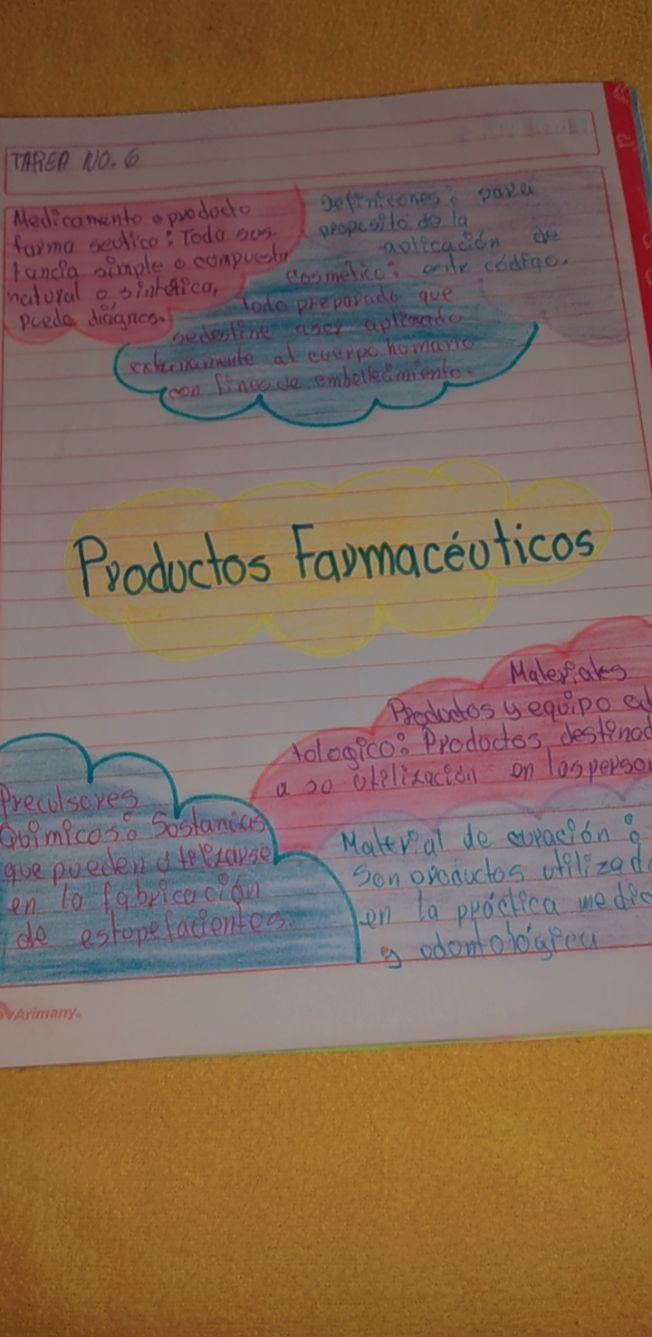 TAREA NO. 6
Medicamento o producto
farma seutico: Toda sus
tancia simple o compuesta
natural o sintética,
puede diagnos.
Definiciones: para
proposito de la
aplicación de
este código.
Cosmético:
todo preparado que
sedestine aser aplicado
externamente al cuerpo homano
con fines de embellecimiento.
Productos Farmacéuticos
Materiales
Productos y equipo od
tologico: Productos destinad
a so Utilización en las person
Preculsores
Químicos: Sostancias
que pueden utelizarse
en la fabricación
de estopefacientes.
Material de curación:
Son productos utilizad
en la práctica medic
y odontológica
Arimany